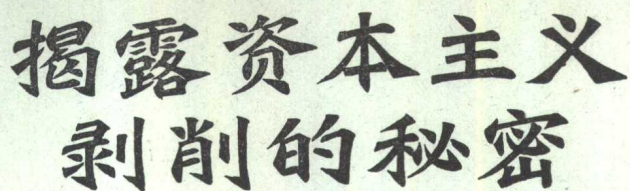 揭露资本主义
剥削的秘密